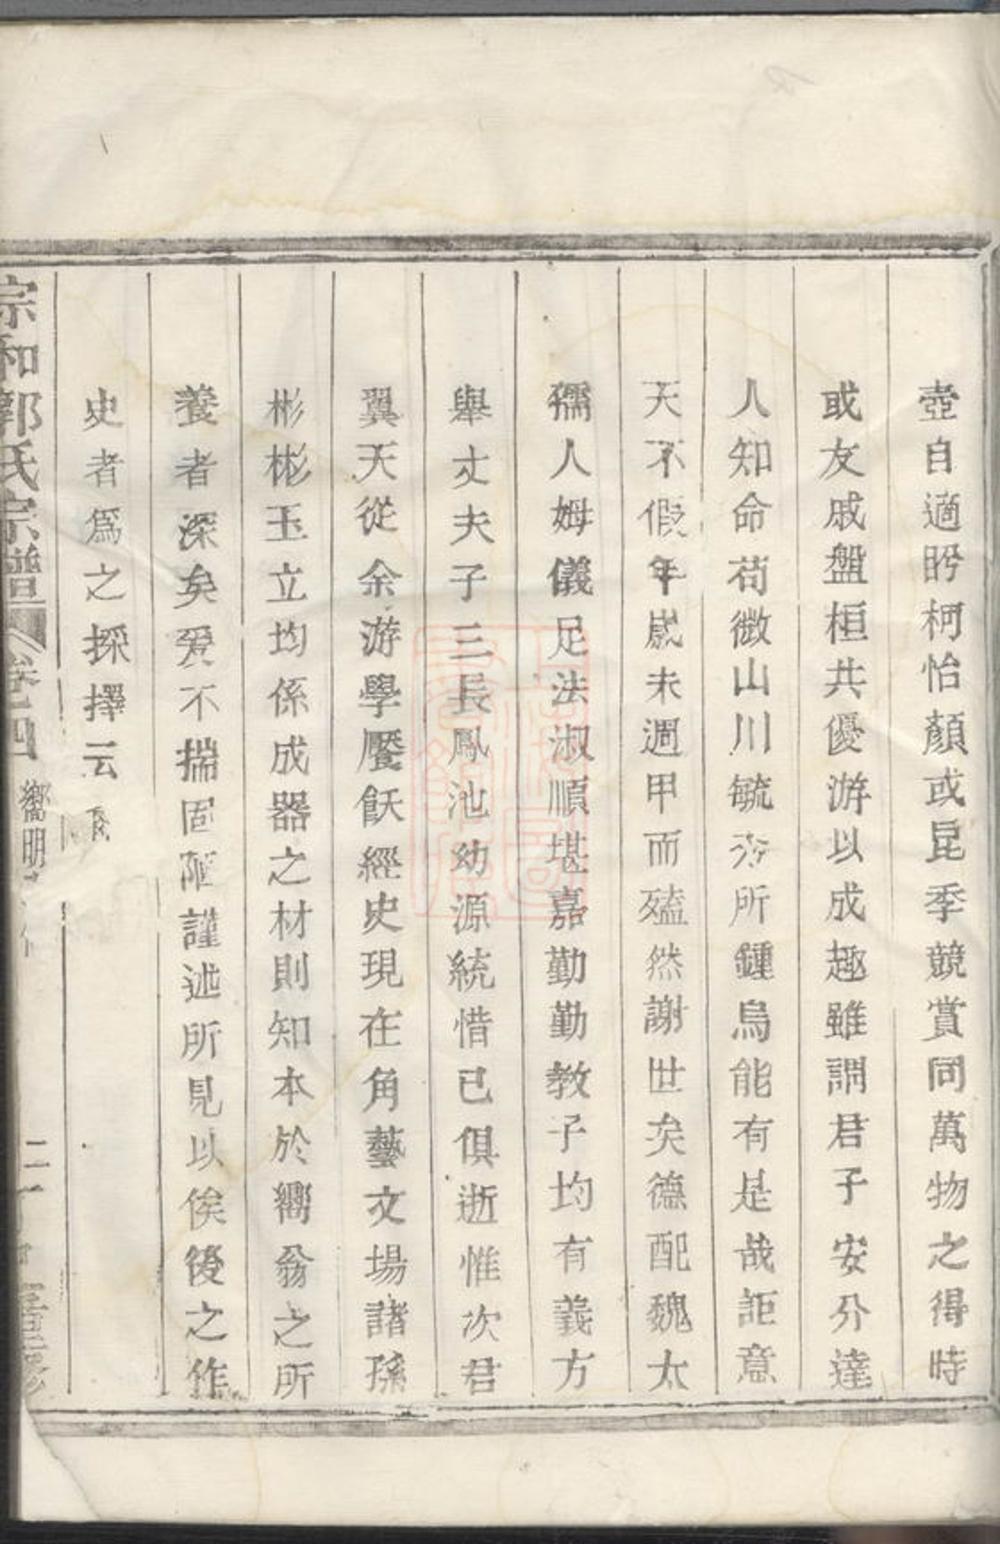 壺自適眄柯怡顏或昆季競賞同萬物之得時
或友戚盤桓共優游以成趣雖謂君子安分達
人知命苟微山川毓秀所鍾烏能有是哉詎意
天不假年歲未週甲而殪然謝世矣德配魏太
孺人姆儀足法淑順堪嘉勤勤教子均有義方
舉丈夫子三長鳳池幼源統惜已俱逝惟次君
翼天從余游學饜飫經史現在角藝文場諸孫
彬彬玉立均係成器之材則知本於嚮翁之所
養者深矣爰不揣固陋謹述所見以俟後之作
史者為之採擇云
宗和郭氏宗譜 卷四 嚮明